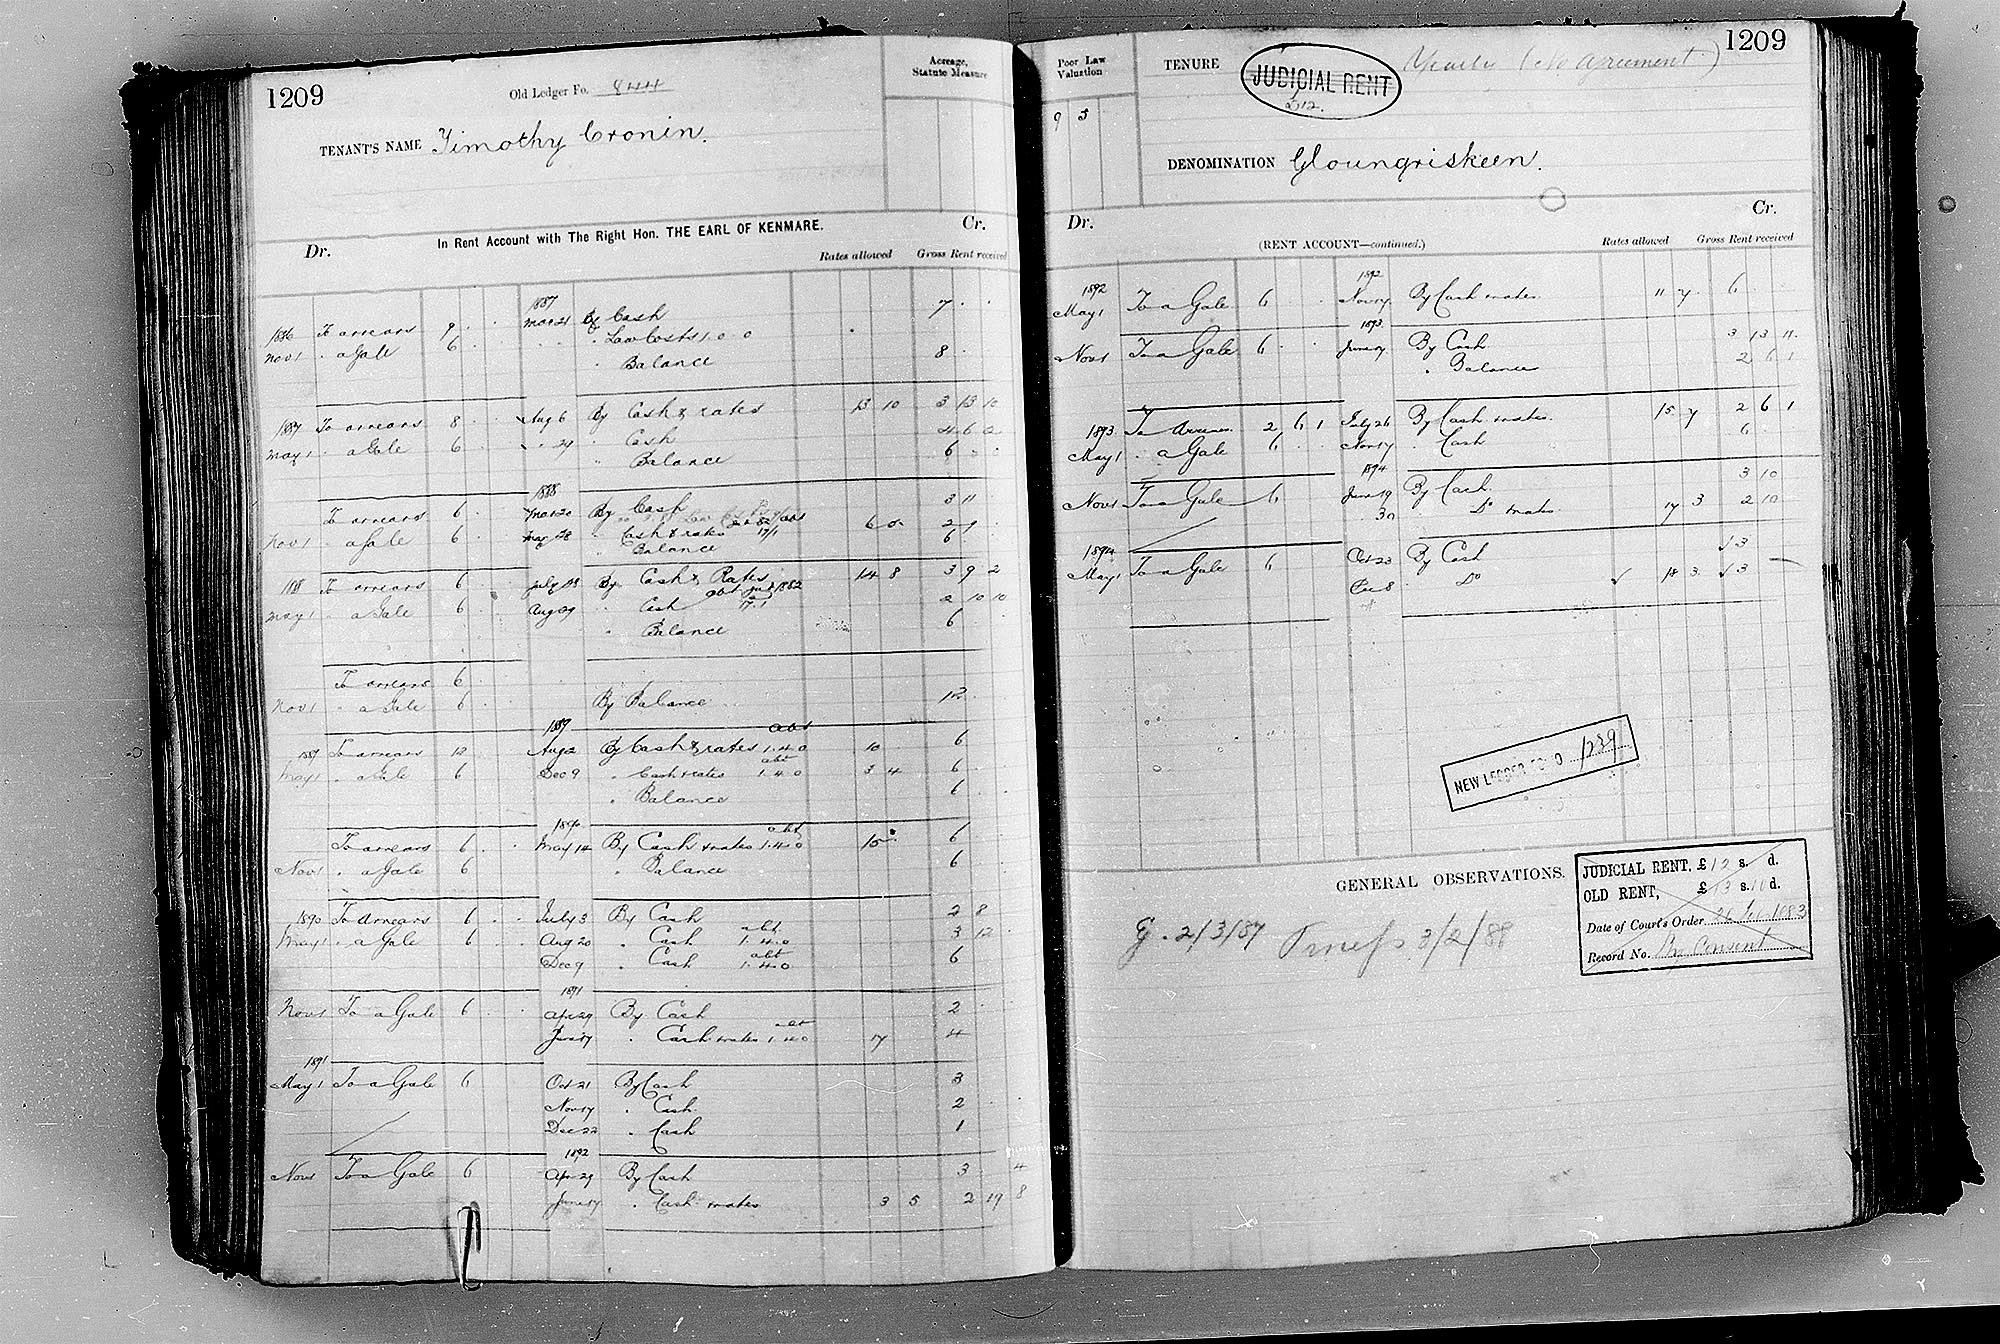 1209
Old Ledger Fo. 844
Acreage, Statute Measure
TENANT'S NAME Timothy Cronin.
In Rent Account with The Right Hon. THE EARL OF KENMARE.
Dr. Cr.
Rates allowed Gross Rent received
1887
1886 To arrears 9 Mar 21 By Cash 7
Nov 1 " a Gale 6 " Law Costs 1.0.0
" Balance 8
1887 To arrears 8 Aug 6 By Cash & rates 13 10 3 13 10
May 1 " a Gale 6 " 29 " Cash 4 6 2
" Balance 6
1888
To arrears 6 Mar 20 By Cash 3 11
Nov 1 " a Gale 6 May 28 " Cash & rates 17/1 6 2 9
" Balance 6
1888 To arrears 6 July 23 By Cash & Rates 14 8 3 9 2
May 1 " a Gale 6 Aug 29 " Cash 17.1 2 10 10
" Balance 6
To arrears 6
Nov 1 " a Gale 6 By Balance 12
1889 abt
1889 To arrears 12 Aug 2 By Cash & rates 1.4.0 10 6
May 1 " a Gale 6 Dec 9 " Cash & rates abt 1.4.0 3 4 6
" Balance 6
1890
To arrears 6 May 14 By Cash & rates abt 1.4.0 15 6
Nov 1 " a Gale 6 " Balance 6
1890 To arrears 6 July 3 By Cash 2 8
May 1 " a Gale 6 Aug 20 " Cash abt 1.4.0 3 12
Dec 9 " Cash abt 1.4.0 6
1891
Nov 1 To a Gale 6 Apr 29 By Cash 2
June 17 " Cash & rates abt 1.4.0 17 4
1891
May 1 To a Gale 6 Oct 21 By Cash 3
Nov 17 " Cash 2
Dec 22 " Cash 1
1892
Nov 1 To a Gale 6 Apr 29 By Cash 3 4
June 17 " Cash & rates 3 5 2 19 8
1209
Poor Law Valuation
9 5
TENURE JUDICIAL RENT Yearly (No agreement)
£12.
DENOMINATION Gloungriskeen.
Dr. Cr.
(RENT ACCOUNT—continued.)
Rates allowed Gross Rent received
1892 1892
May 1 To a Gale 6 Nov 17 By Cash & rates 11 7 6
1893
Nov 1 To a Gale 6 June 17 By Cash 3 13 11
" Balance 2 6 1
1893 To Arrears 2 6 1 July 26 By Cash & rates 15 7 2 6 1
May 1 " a Gale 6 Nov 17 " Cash 6
1894
Nov 1 To a Gale 6 June 19 By Cash 3 10
" 30 Do & rates 17 3 2 10
1894
May 1 To a Gale 6 Oct 23 By Cash 3
Dec 8 " Do 18 3 3
NEW LEDGER FOLIO 1239
GENERAL OBSERVATIONS.
G. 2/3/87 3/2/88
JUDICIAL RENT, £12 s. d.
OLD RENT, £13 s. 10 d.
Date of Court's Order 1883
Record No. By Consent